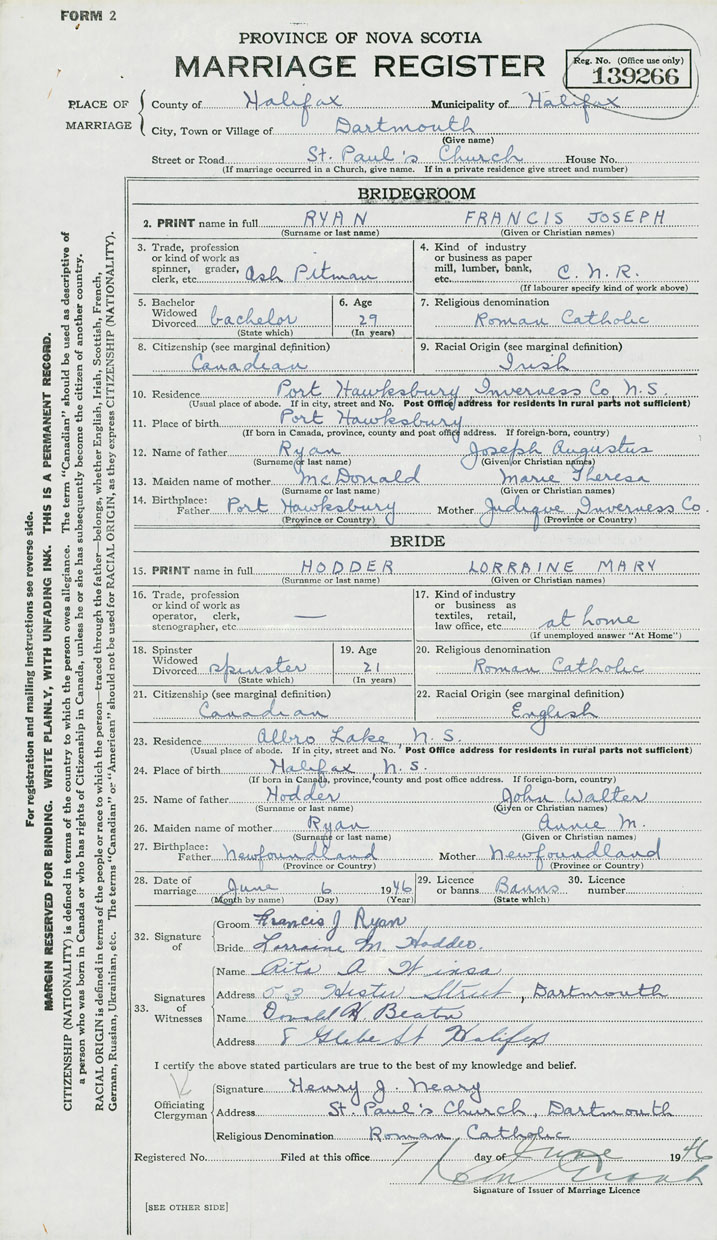 FORM 2
PROVINCE OF NOVA SCOTIA
MARRIAGE REGISTER
Reg. No. (Office use only)
139266
PLACE OF MARRIAGE
County of Halifax Municipality of Halifax
City, Town or Village of Dartmouth
(Give name)
Street or Road St. Paul's Church House No.
(If marriage occurred in a Church, give name. If in a private residence give street and number)
BRIDEGROOM
2. PRINT name in full RYAN FRANCIS JOSEPH
(Surname or last name) (Given or Christian names)
3. Trade, profession or kind of work as spinner, grader, clerk, etc. Ash Pitman
4. Kind of industry or business as paper mill, lumber, bank, etc. C.N.R.
(If labourer specify kind of work above)
5. Bachelor Widowed Divorced bachelor
(State which)
6. Age 29
(In years)
7. Religious denomination
Roman Catholic
8. Citizenship (see marginal definition)
Canadian
9. Racial Origin (see marginal definition)
Irish
10. Residence Port Hawksbury Inverness Co N.S.
(Usual place of abode. If in city, street and No. Post Office address for residents in rural parts not sufficient)
11. Place of birth Port Hawksbury
(If born in Canada, province, county and post office address. If foreign-born, country)
12. Name of father Ryan Joseph Augustus
(Surname or last name) (Given or Christian names)
13. Maiden name of mother McDonald Marie Theresa
(Surname or last name) (Given or Christian names)
14. Birthplace: Father Port Hawksbury Mother Judique Inverness Co.
(Province or Country) (Province or Country)
BRIDE
15. PRINT name in full HODDER LORRAINE MARY
(Surname or last name) (Given or Christian names)
16. Trade, profession or kind of work as operator, clerk, stenographer, etc. —
17. Kind of industry or business as textiles, retail, law office, etc. at home
(If unemployed answer "At Home")
18. Spinster Widowed Divorced spinster
(State which)
19. Age 21
(In years)
20. Religious denomination
Roman Catholic
21. Citizenship (see marginal definition)
Canadian
22. Racial Origin (see marginal definition)
English
23. Residence Albro Lake N.S.
(Usual place of abode. If in city, street and No. Post Office address for residents in rural parts not sufficient)
24. Place of birth Halifax N.S.
(If born in Canada, province, county and post office address. If foreign-born, country)
25. Name of father Hodder John Walter
(Surname or last name) (Given or Christian names)
26. Maiden name of mother Ryan Annie M.
(Surname or last name) (Given or Christian names)
27. Birthplace: Father Newfoundland Mother Newfoundland
(Province or Country) (Province or Country)
28. Date of marriage June 6 1946
(Month by name) (Day) (Year)
29. Licence or banns Banns
(State which)
30. Licence number
32. Signature of
Groom Francis J Ryan
Bride Lorraine M. Hodder.
33. Signatures of Witnesses
Name Rita A
Address 53 Hester Street, Dartmouth
Name Donald H. Beaton
Address 8 Glebe St Halifax
I certify the above stated particulars are true to the best of my knowledge and belief.
Officiating Clergyman
Signature Henry J. Neary
Address St. Paul's Church, Dartmouth
Religious Denomination Roman Catholic
Registered No. Filed at this office 7 day of June 1946
Signature of Issuer of Marriage Licence
[SEE OTHER SIDE]
For registration and mailing instructions see reverse side.
MARGIN RESERVED FOR BINDING. WRITE PLAINLY, WITH UNFADING INK. THIS IS A PERMANENT RECORD.
CITIZENSHIP (NATIONALITY) is defined in terms of the country to which the person owes allegiance. The term "Canadian" should be used as descriptive of
a person who was born in Canada or who has rights of Citizenship in Canada, unless he or she has subsequently become the citizen of another country.
RACIAL ORIGIN is defined in terms of the people or race to which the person—traced through the father—belongs, whether English, Irish, Scottish, French,
German, Russian, Ukrainian, etc. The terms "Canadian" or "American" should not be used for RACIAL ORIGIN, as they express CITIZENSHIP (NATIONALITY).